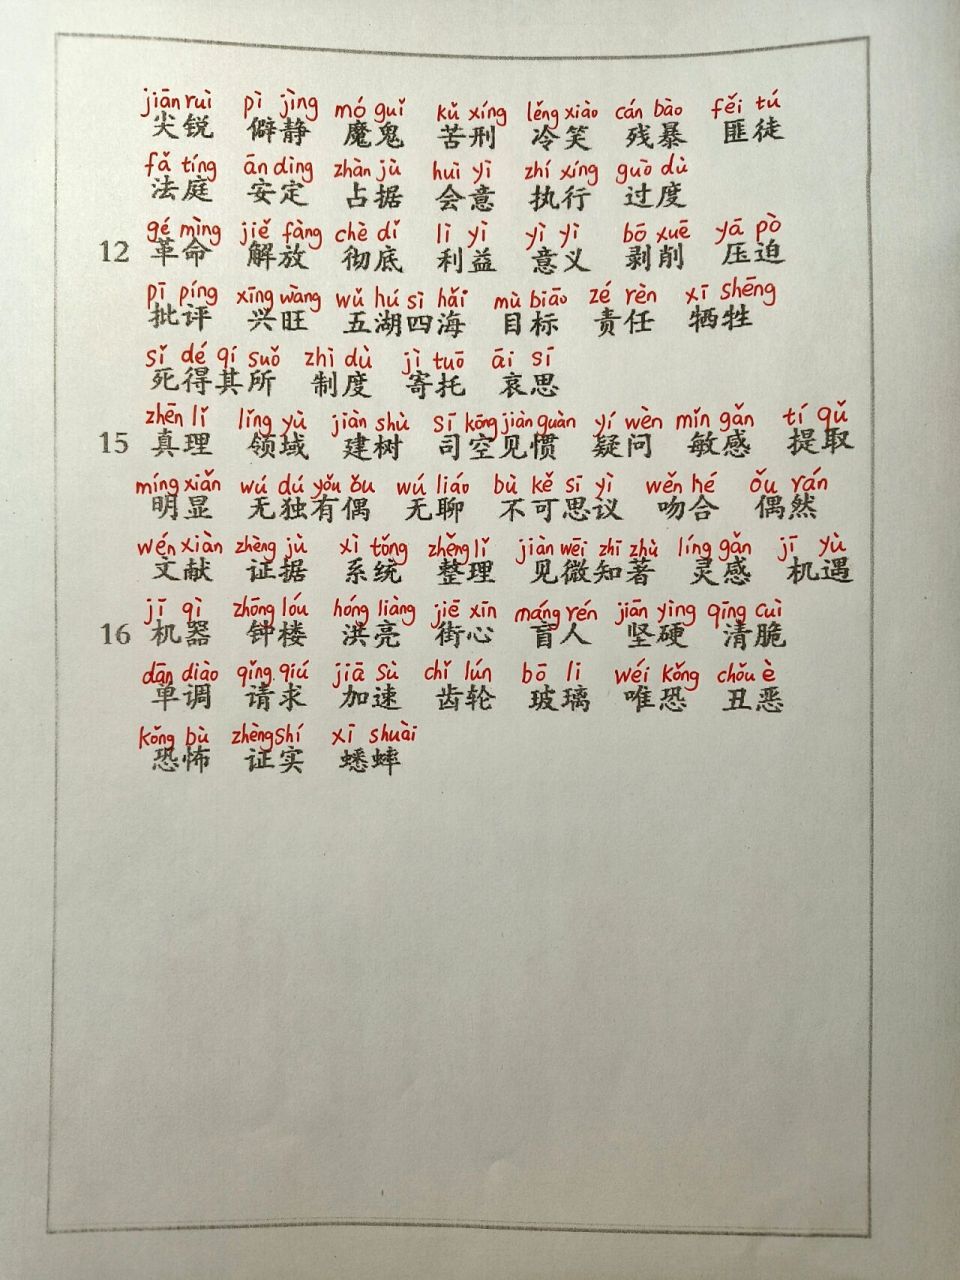 jiān ruì pì jìng mó guǐ kǔ xíng lěng xiào cán bào fěi tú
尖锐 僻静 魔鬼 苦刑 冷笑 残暴 匪徒
fǎ tíng ān dìng zhàn jù huì yì zhí xíng guò dù
法庭 安定 占据 会意 执行 过度
gé mìng jiě fàng chè dǐ lì yì yì yì bō xuē yā pò
12 革命 解放 彻底 利益 意义 剥削 压迫
pī píng xīng wàng wǔ hú sì hǎi mù biāo zé rèn xī shēng
批评 兴旺 五湖四海 目标 责任 牺牲
sǐ dé qí suǒ zhì dù jì tuō āi sī
死得其所 制度 寄托 哀思
zhēn lǐ lǐng yù jiàn shù sī kōng jiàn guàn yí wèn mǐn gǎn tí qǔ
15 真理 领域 建树 司空见惯 疑问 敏感 提取
míng xiǎn wú dú yǒu ǒu wú liáo bù kě sī yì wěn hé ǒu rán
明显 无独有偶 无聊 不可思议 吻合 偶然
wén xiàn zhèng jù xì tǒng zhěng lǐ jiàn wēi zhī zhù líng gǎn jī yù
文献 证据 系统 整理 见微知著 灵感 机遇
jī qì zhōng lóu hóng liàng jiē xīn máng rén jiān yìng qīng cuì
16 机器 钟楼 洪亮 街心 盲人 坚硬 清脆
dān diào qǐng qiú jiā sù chǐ lún bō li wéi kǒng chǒu è
单调 请求 加速 齿轮 玻璃 唯恐 丑恶
kǒng bù zhèng shí xī shuài
恐怖 证实 蟋蟀